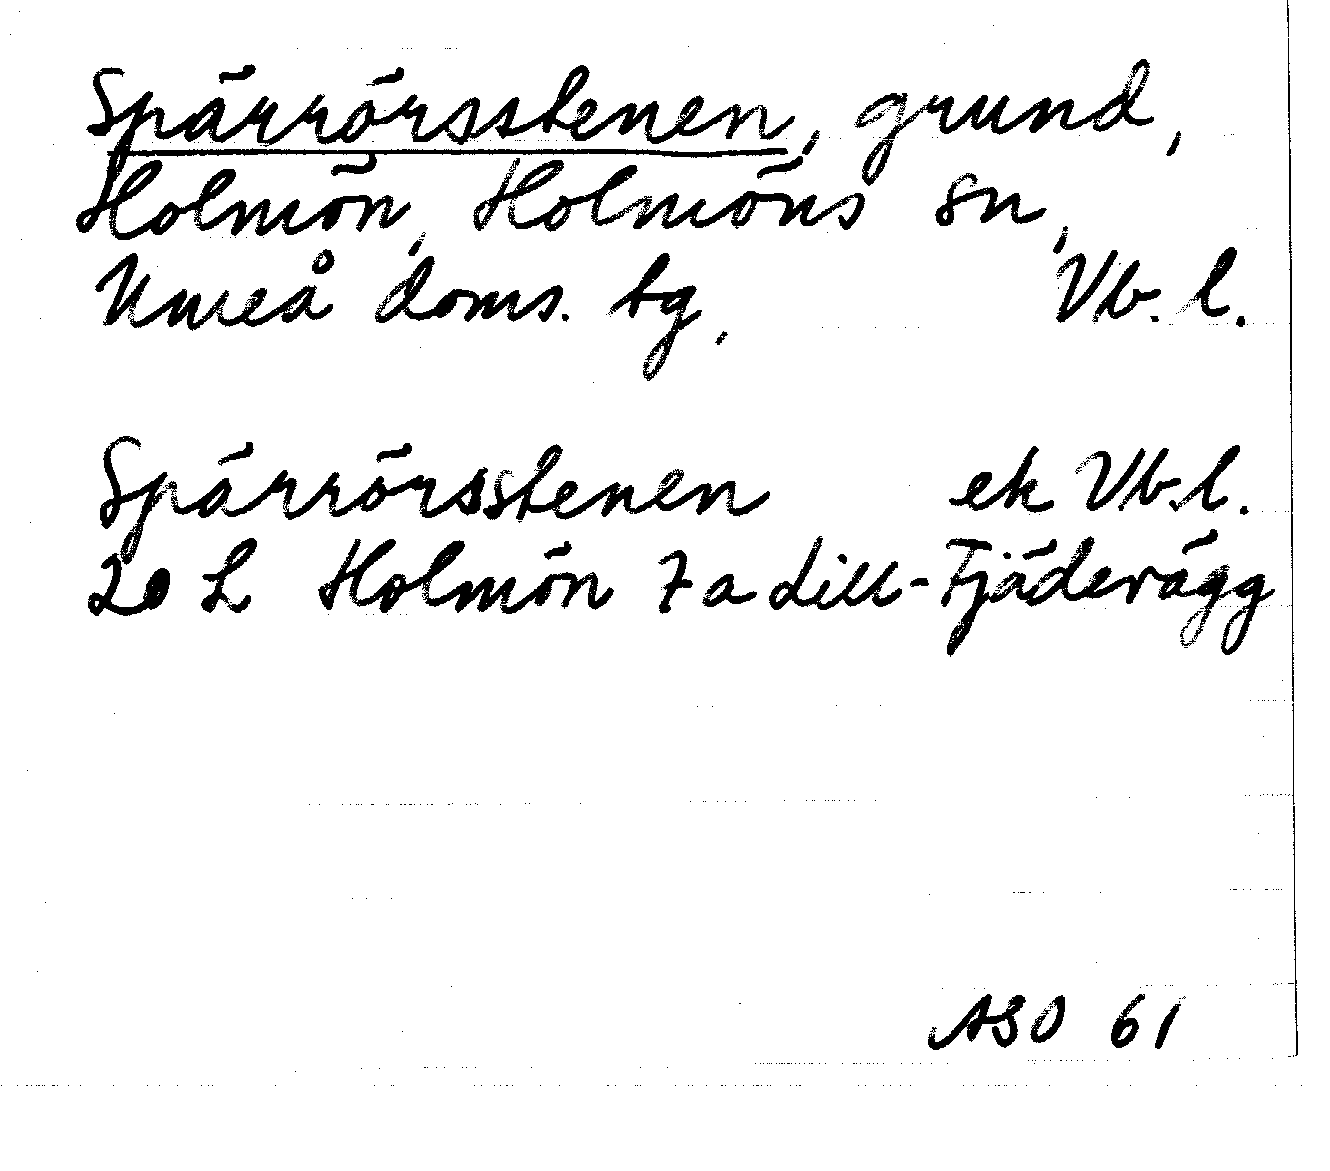 Spärrörsstenen, grund,
Holmön, Holmöns sn,
Umeå doms. tg, Vb. l.
Spärrörsstenen ek Vb. l.
20 L Holmön 7 a Lill-Fjäderägg
ASO 61